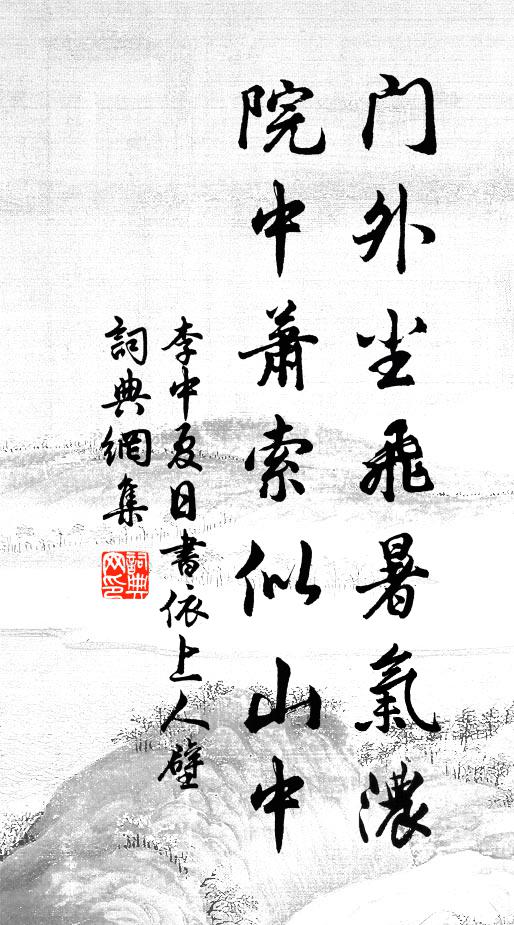 门外尘飛暑氣濃
院中蕭索似山中
李中夏日書依上人壁
詞典網集
詞典网印